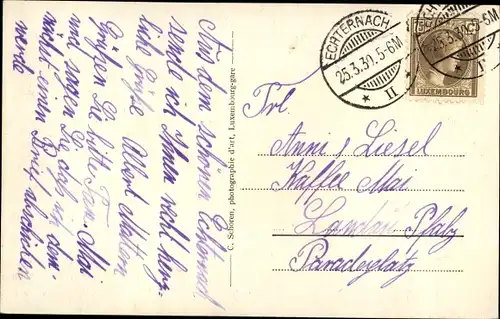 Aus dem schönen Echternach
sende ich Ihnen recht herz-
liche Grüße Albert Mattern
Grüßen Sie bitte Fam. Mai
und sagen Sie daß ich dem-
nächst einen Brief abschicken
werde
C. Schoren, photographie d'art, Luxembourg-gare
ECHTERNACH
25.3.30. 5-6M
* II *
LUXEMBOURG
Frl.
Anni & Liesel
Kaffee Mai
Landau Pfalz
Paradeplatz